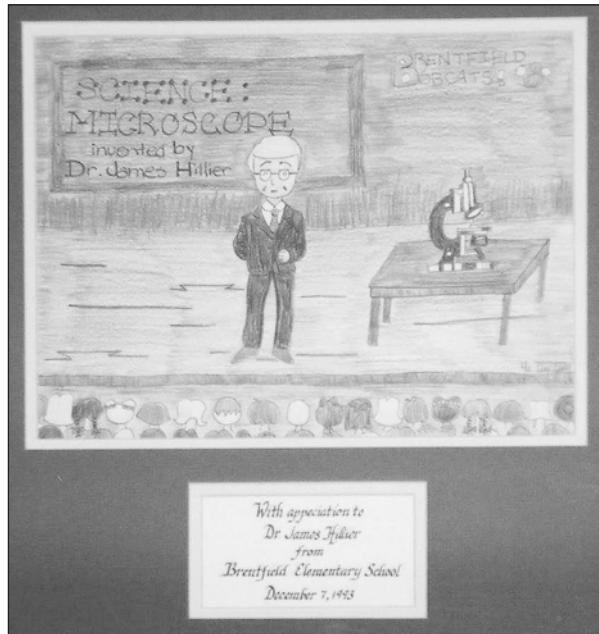 SCIENCE:
MICROSCOPE
invented by
Dr. James Hillier
BRENTFIELD
BOBCATS!
With appeciation to
Dr James Hillier
from
Brentfield Elementary School
December 7, 1993